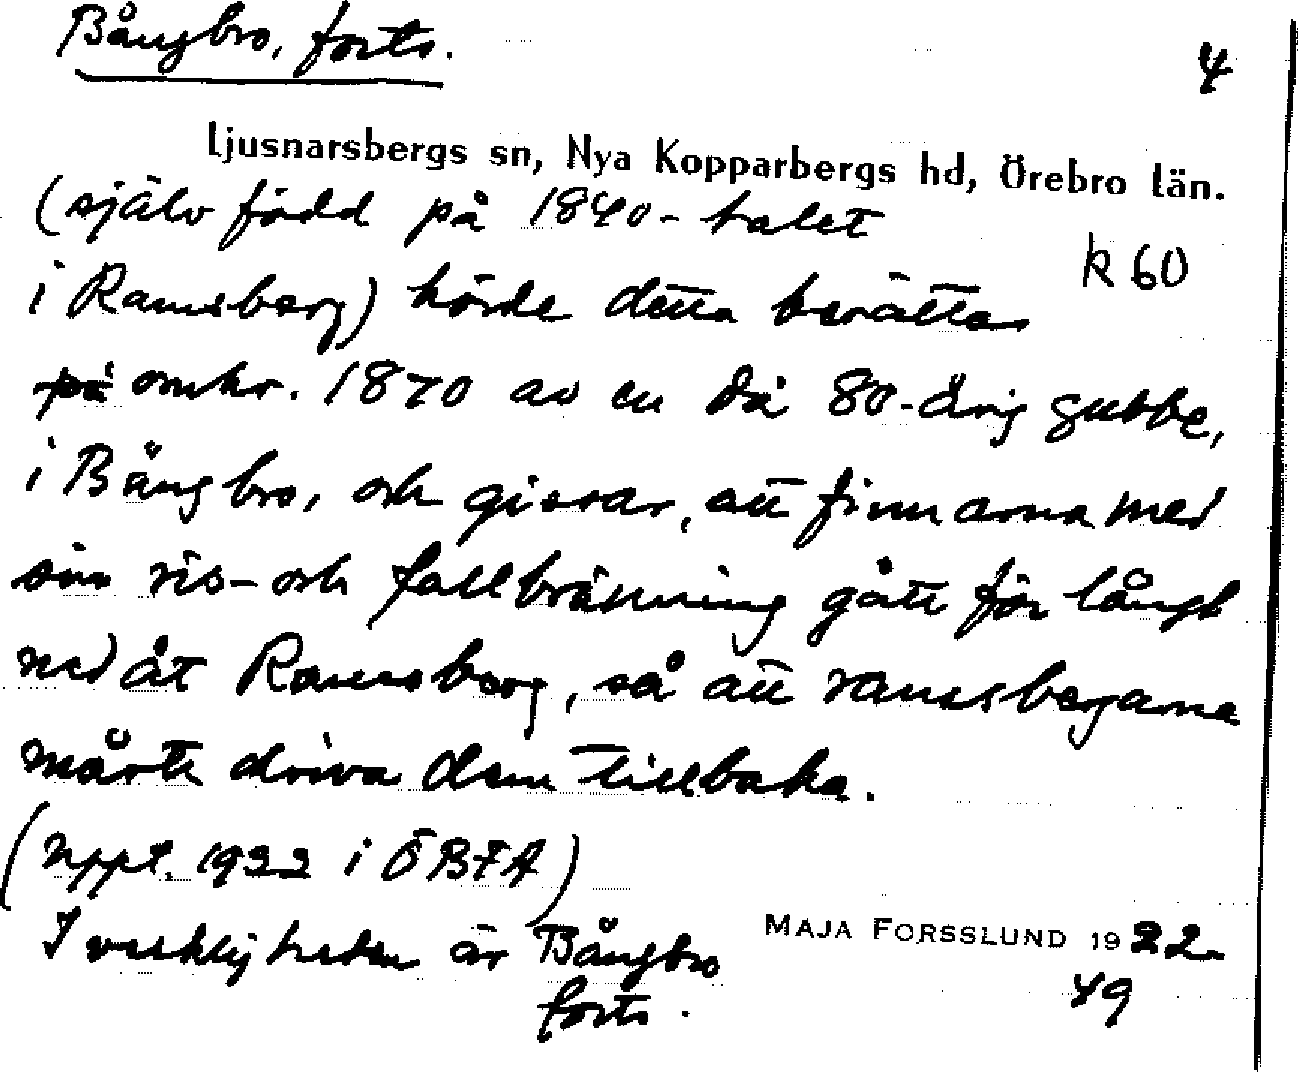 Bångbro, forts.
4
Ljusnarsbergs sn, Nya Kopparbergs hd, Örebro län.
(själv född på 1840-talet
k 60
i Ramsberg) hörde detta berättas
på omkr. 1870 av en då 80-årig gubbe,
i Bångbro, och gissar, att finnarna med
sin ris- och fallbränning gått för långt
ned åt Ramsberg, så att ramsbergarna
måste driva dem tillbaka.
(Uppt. 1922 i ÖBFA)
I verkligheten är Bångbro
forts.
MAJA FORSSLUND 1922-
49